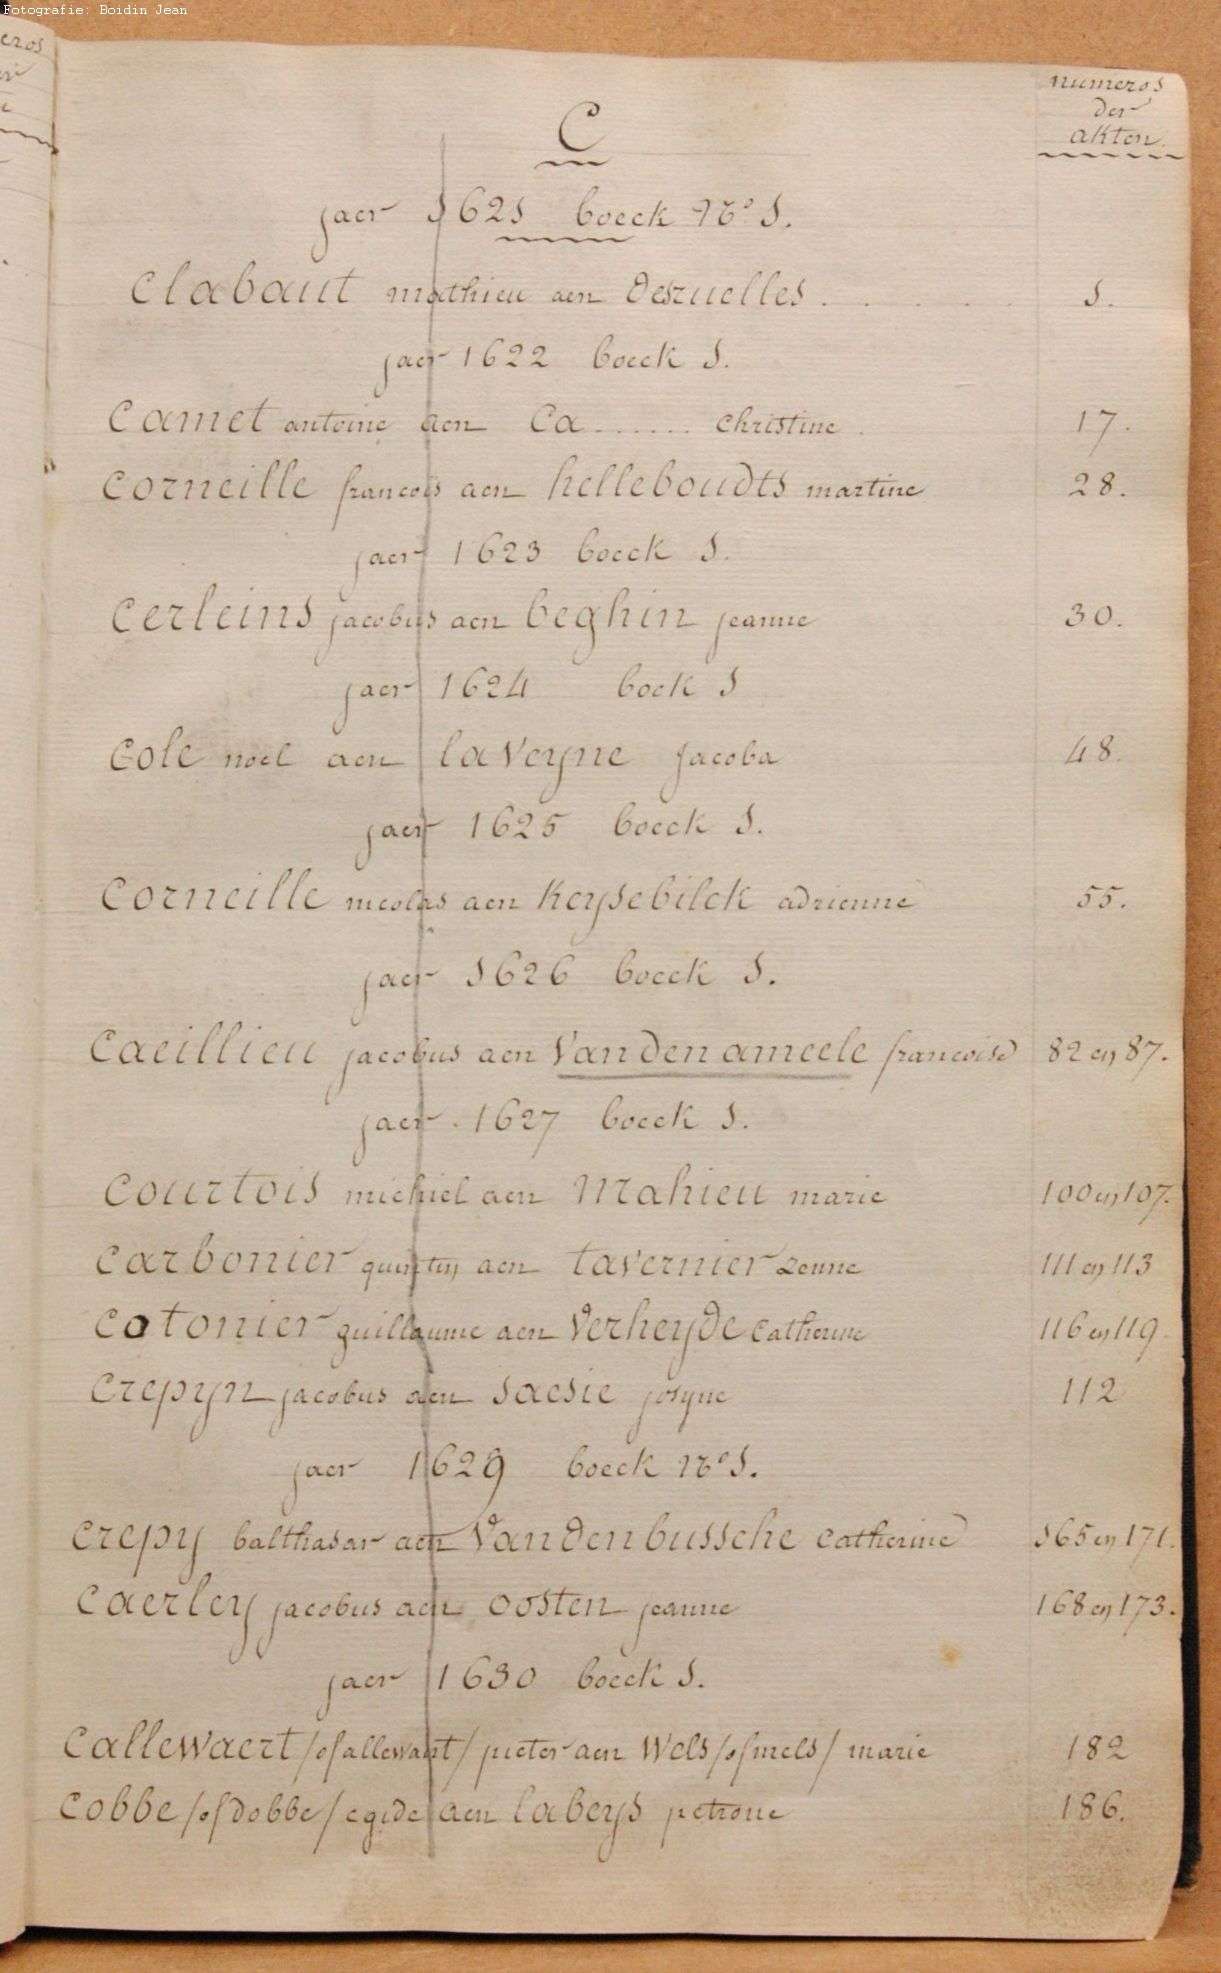 Fotografie: Boidin Jean
numeros
der
akten
C
jaer 1621 boeck N° 1.
Clabaut mathieu aen Desruelles . . . . . . 1.
jaer 1622 boeck 1.
Camet antoine aen Ca...... Christine . 17.
Corneille francois aen helleboudts martine 28.
jaer 1623 boeck 1.
Cerleins jacobus aen beghin jeanne 30.
jaer 1624 boek 1
Cole noel aen laVeyne Jacoba 48.
jaer 1625 boeck 1.
Corneille nicolas aen Keysebilck adrienne 55.
jaer 1626 boeck 1.
Caeillieu jacobus aen Vanden ameele francoise 82 en 87.
jaer 1627 boeck 1.
Courtois michiel aen Mahieu marie 100 en 107.
Carbonier quintin aen tavernier Zenne 111 en 113
Cotonier guillaume aen Verheyde Catherine 116 en 119.
Crepyn jacobus aen Saesie josyne 112
jaer 1629 boeck N° 1.
Crepy balthasar aen Vandenbussche Catherine 165 en 171.
Caerley jacobus aen oosten jeanne 168 en 173.
jaer 1630 boeck 1.
Callewaert /of allewart/ pieter aen Wels /of mels/ marie 182
Cobbe /of dobbe/ egide aen labeys petrone 186.